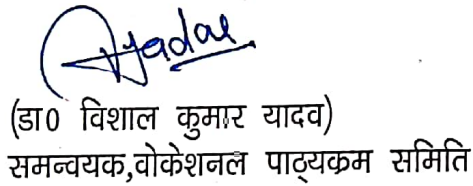 (डा0 विशाल कुमार यादव)
समन्वयक,वोकेशनल पाठ्यक्रम समिति